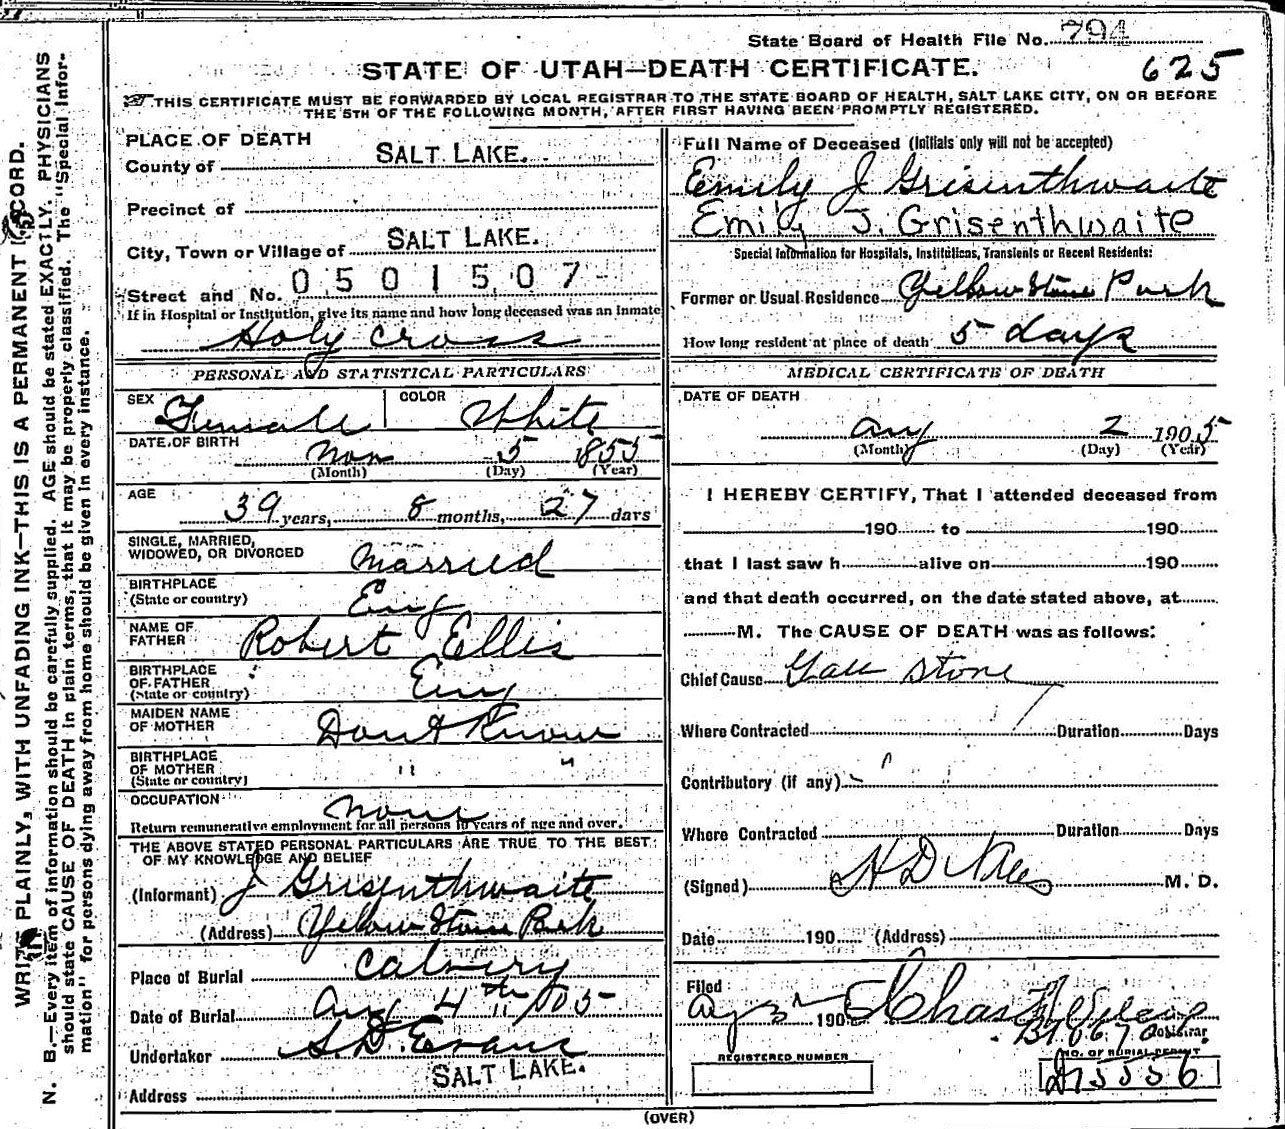 State Board of Health File No. 794
625
STATE OF UTAH—DEATH CERTIFICATE.
THIS CERTIFICATE MUST BE FORWARDED BY LOCAL REGISTRAR TO THE STATE BOARD OF HEALTH, SALT LAKE CITY, ON OR BEFORE
THE 5TH OF THE FOLLOWING MONTH, AFTER FIRST HAVING BEEN PROMPTLY REGISTERED.
PLACE OF DEATH
County of SALT LAKE.
Precinct of
City, Town or Village of SALT LAKE.
Street and No. 0501507
If in Hospital or Institution, give its name and how long deceased was an Inmate
Holy Cross
PERSONAL AND STATISTICAL PARTICULARS
SEX Female COLOR White
DATE OF BIRTH
Nov 5 1855
(Month) (Day) (Year)
AGE
39 years, 8 months, 27 days
SINGLE, MARRIED,
WIDOWED, OR DIVORCED Married
BIRTHPLACE
(State or country) Eng
NAME OF
FATHER Robert Ellis
BIRTHPLACE
OF FATHER
(State or country) Eng
MAIDEN NAME
OF MOTHER Dont Know
BIRTHPLACE
OF MOTHER
(State or country) " "
OCCUPATION None
Return remunerative employment for all persons 10 years of age and over.
THE ABOVE STATED PERSONAL PARTICULARS ARE TRUE TO THE BEST
OF MY KNOWLEDGE AND BELIEF
(Informant) J Grisenthwaite
(Address) Yellow Stone Park
Place of Burial Calvery
Date of Burial Aug 4th 1905
Undertaker S. D. Evans
SALT LAKE.
Address
Full Name of Deceased (Initials only will not be accepted)
Emily J Grisenthwaite
Emily J. Grisenthwaite
Special Information for Hospitals, Institutions, Transients or Recent Residents:
Former or Usual Residence Yellow Stone Park
How long resident at place of death 5 days
MEDICAL CERTIFICATE OF DEATH
DATE OF DEATH
Aug 2 1905
(Month) (Day) (Year)
I HEREBY CERTIFY, That I attended deceased from
190 to 190
that I last saw h alive on 190
and that death occurred, on the date stated above, at
M. The CAUSE OF DEATH was as follows:
Chief Cause Gall Stone
Where Contracted Duration Days
Contributory (if any)
Where Contracted Duration Days
(Signed) H D Niles M. D.
Date 190 (Address)
Filed
Aug 3 190 Chas
Registrar
REGISTERED NUMBER
NO. OF BURIAL PERMIT
(OVER)
WRITE PLAINLY, WITH UNFADING INK—THIS IS A PERMANENT RECORD.
N. B.—Every item of information should be carefully supplied. AGE should be stated EXACTLY. PHYSICIANS
should state CAUSE OF DEATH in plain terms, that it may be properly classified. The "Special Infor-
mation" for persons dying away from home should be given in every instance.